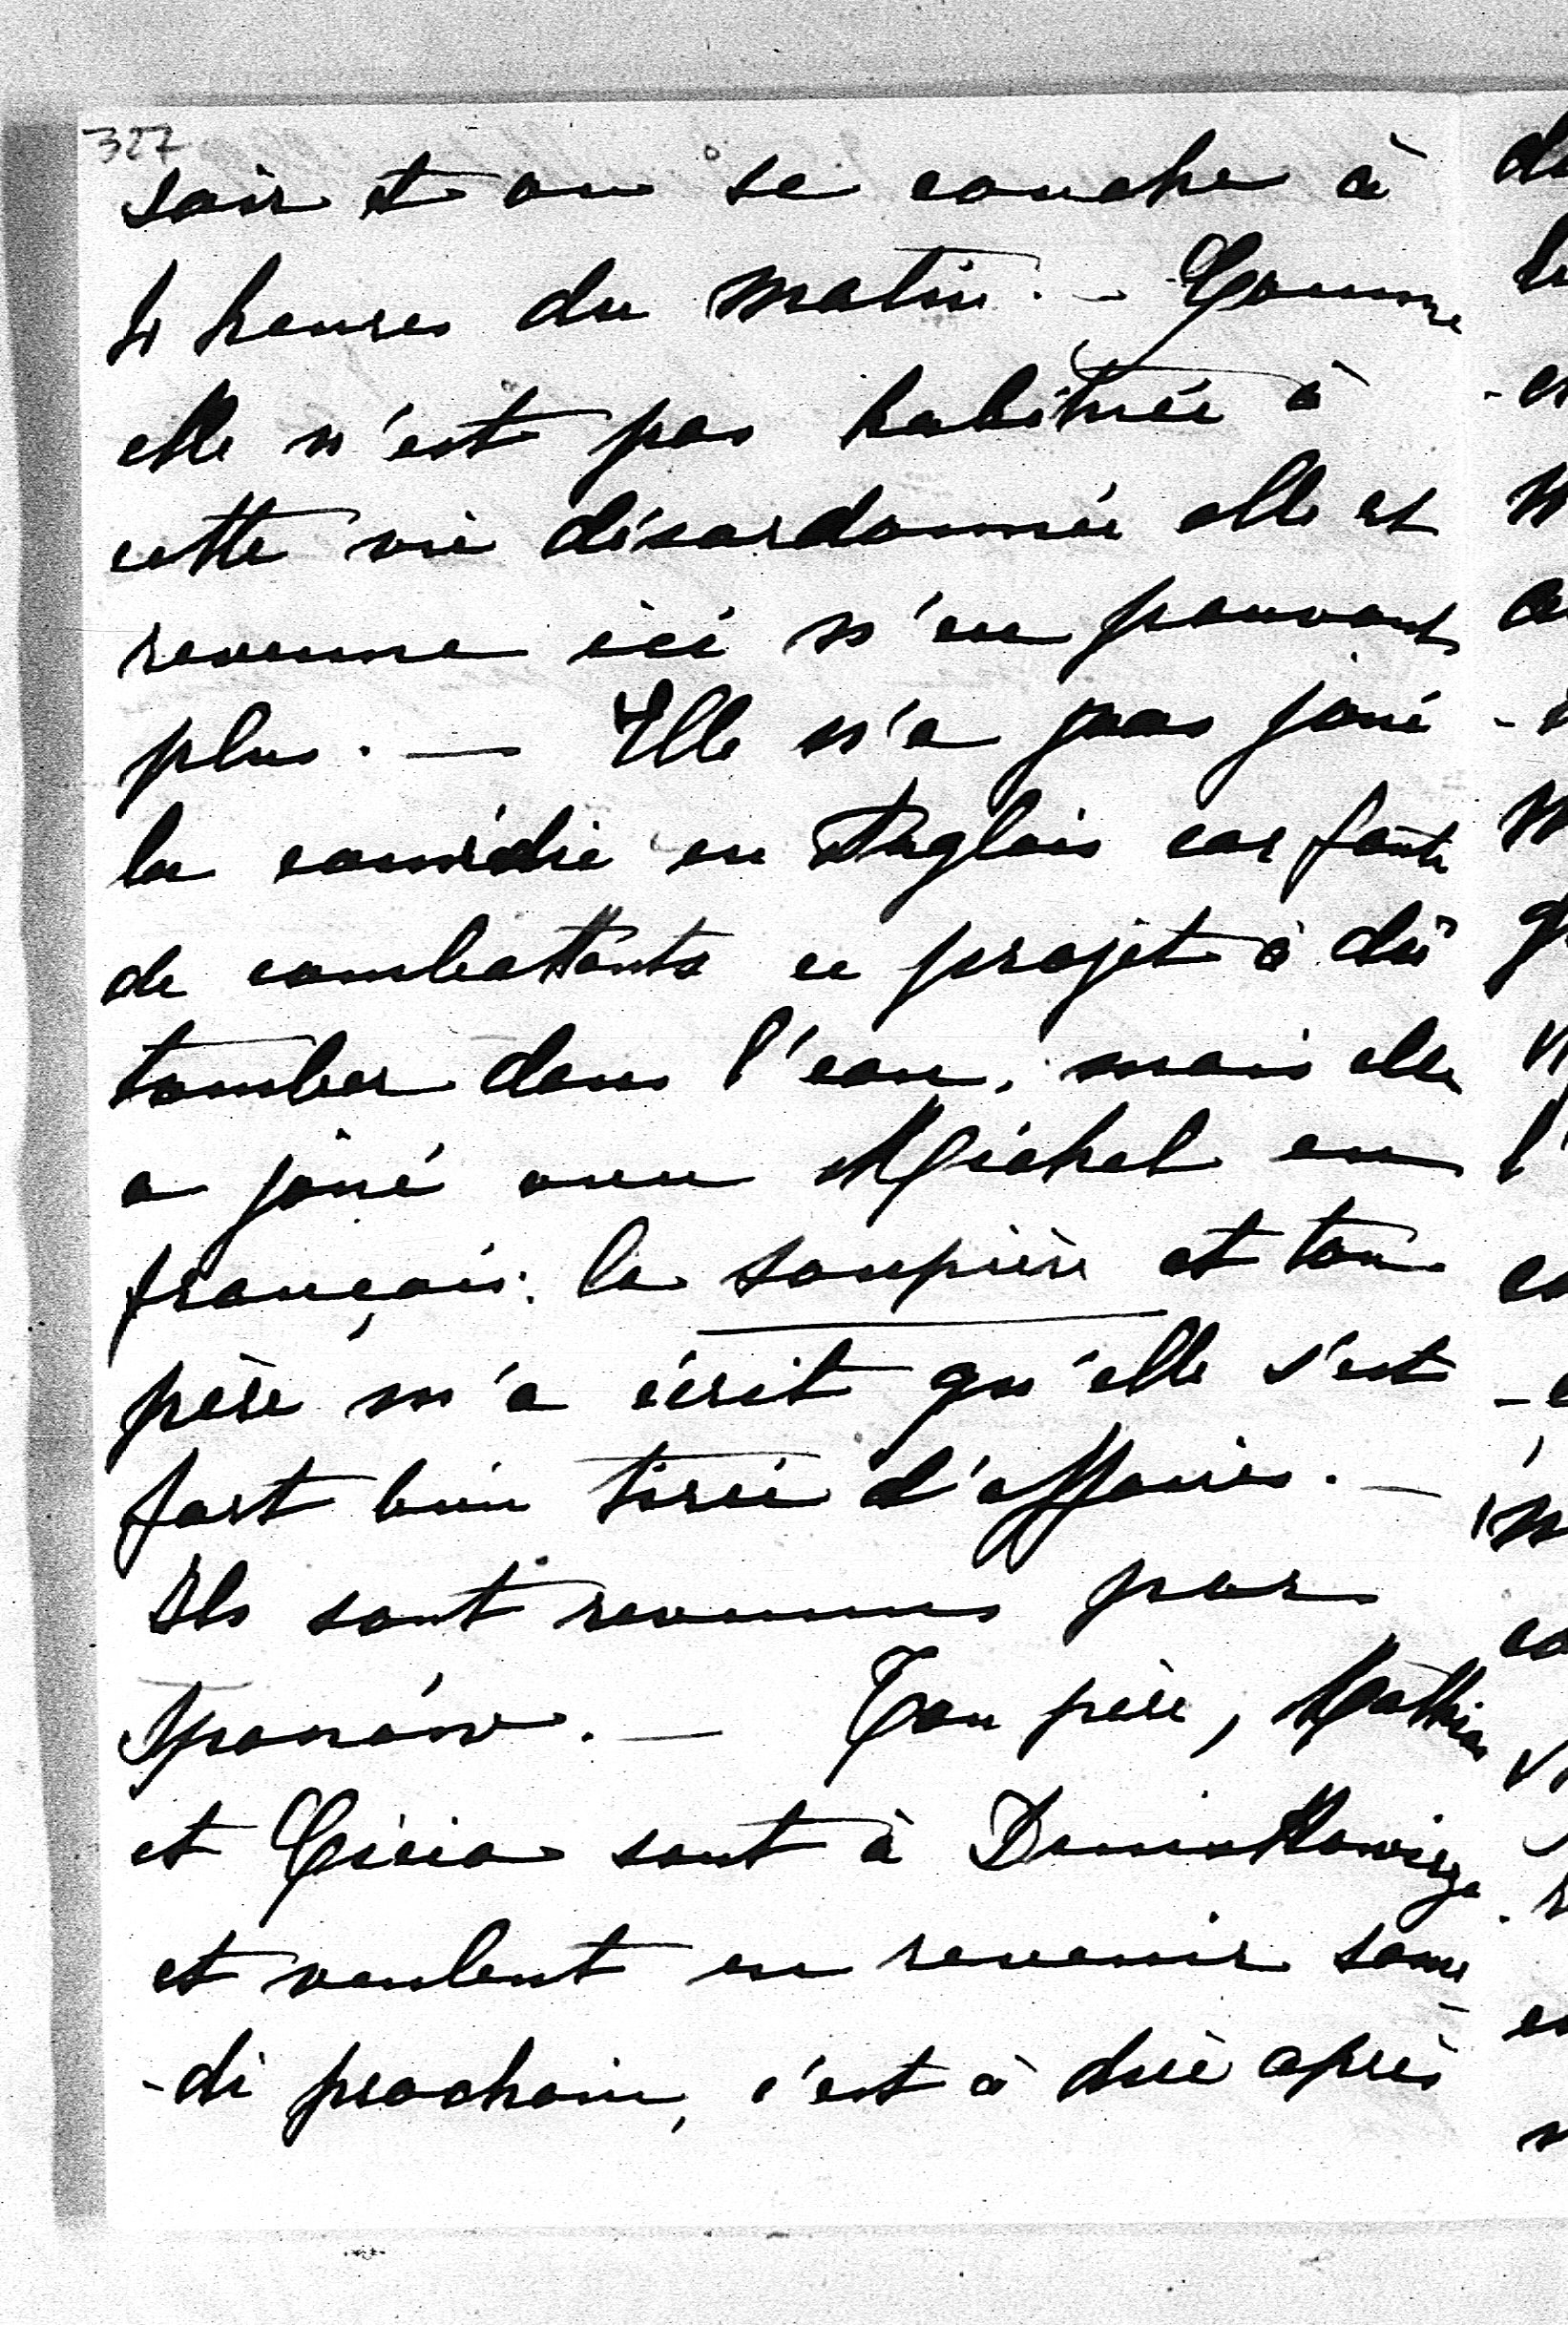 327
soir et on se couche à
4 heures du matin. - Comme
elle n'est pas habituée à
cette vie désordonnée elle est
revenue ici n'en pouvant
plus. — Elle n'a pas joué
la comédie en Anglais car faute
de combattants ce projet à dû
tomber dans l'eau, mais elle
a joué avec Michel en
français: la soupière et ton
père m'a écrit qu'elle s'est
fort bien tirée d'affaires. —
Ils sont revenus par
Ton père, Mathias
et Cicia sont à
et veulent en revenir same
-di prochain, c'est à dire après